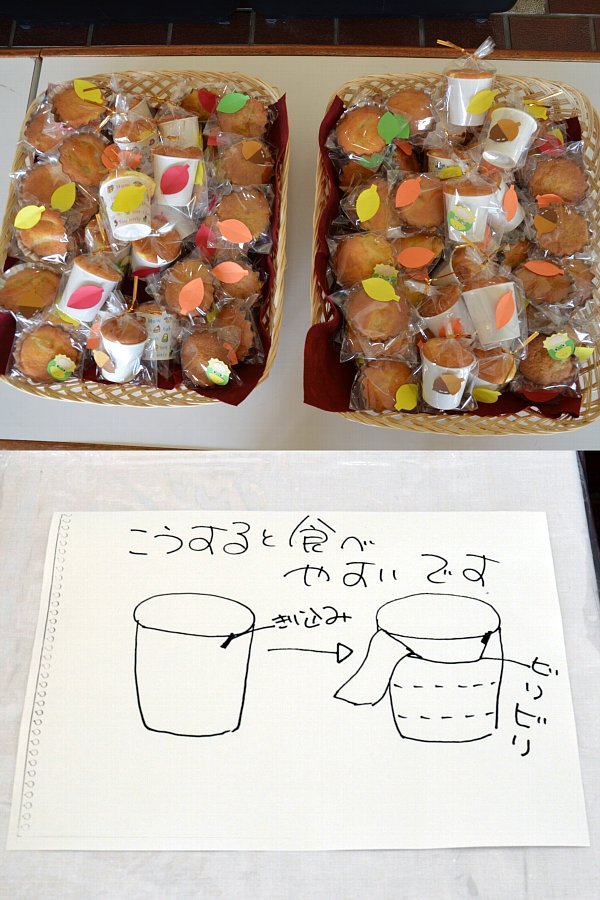 こうすると食べ
やすいです
きり込み
ビリビリ